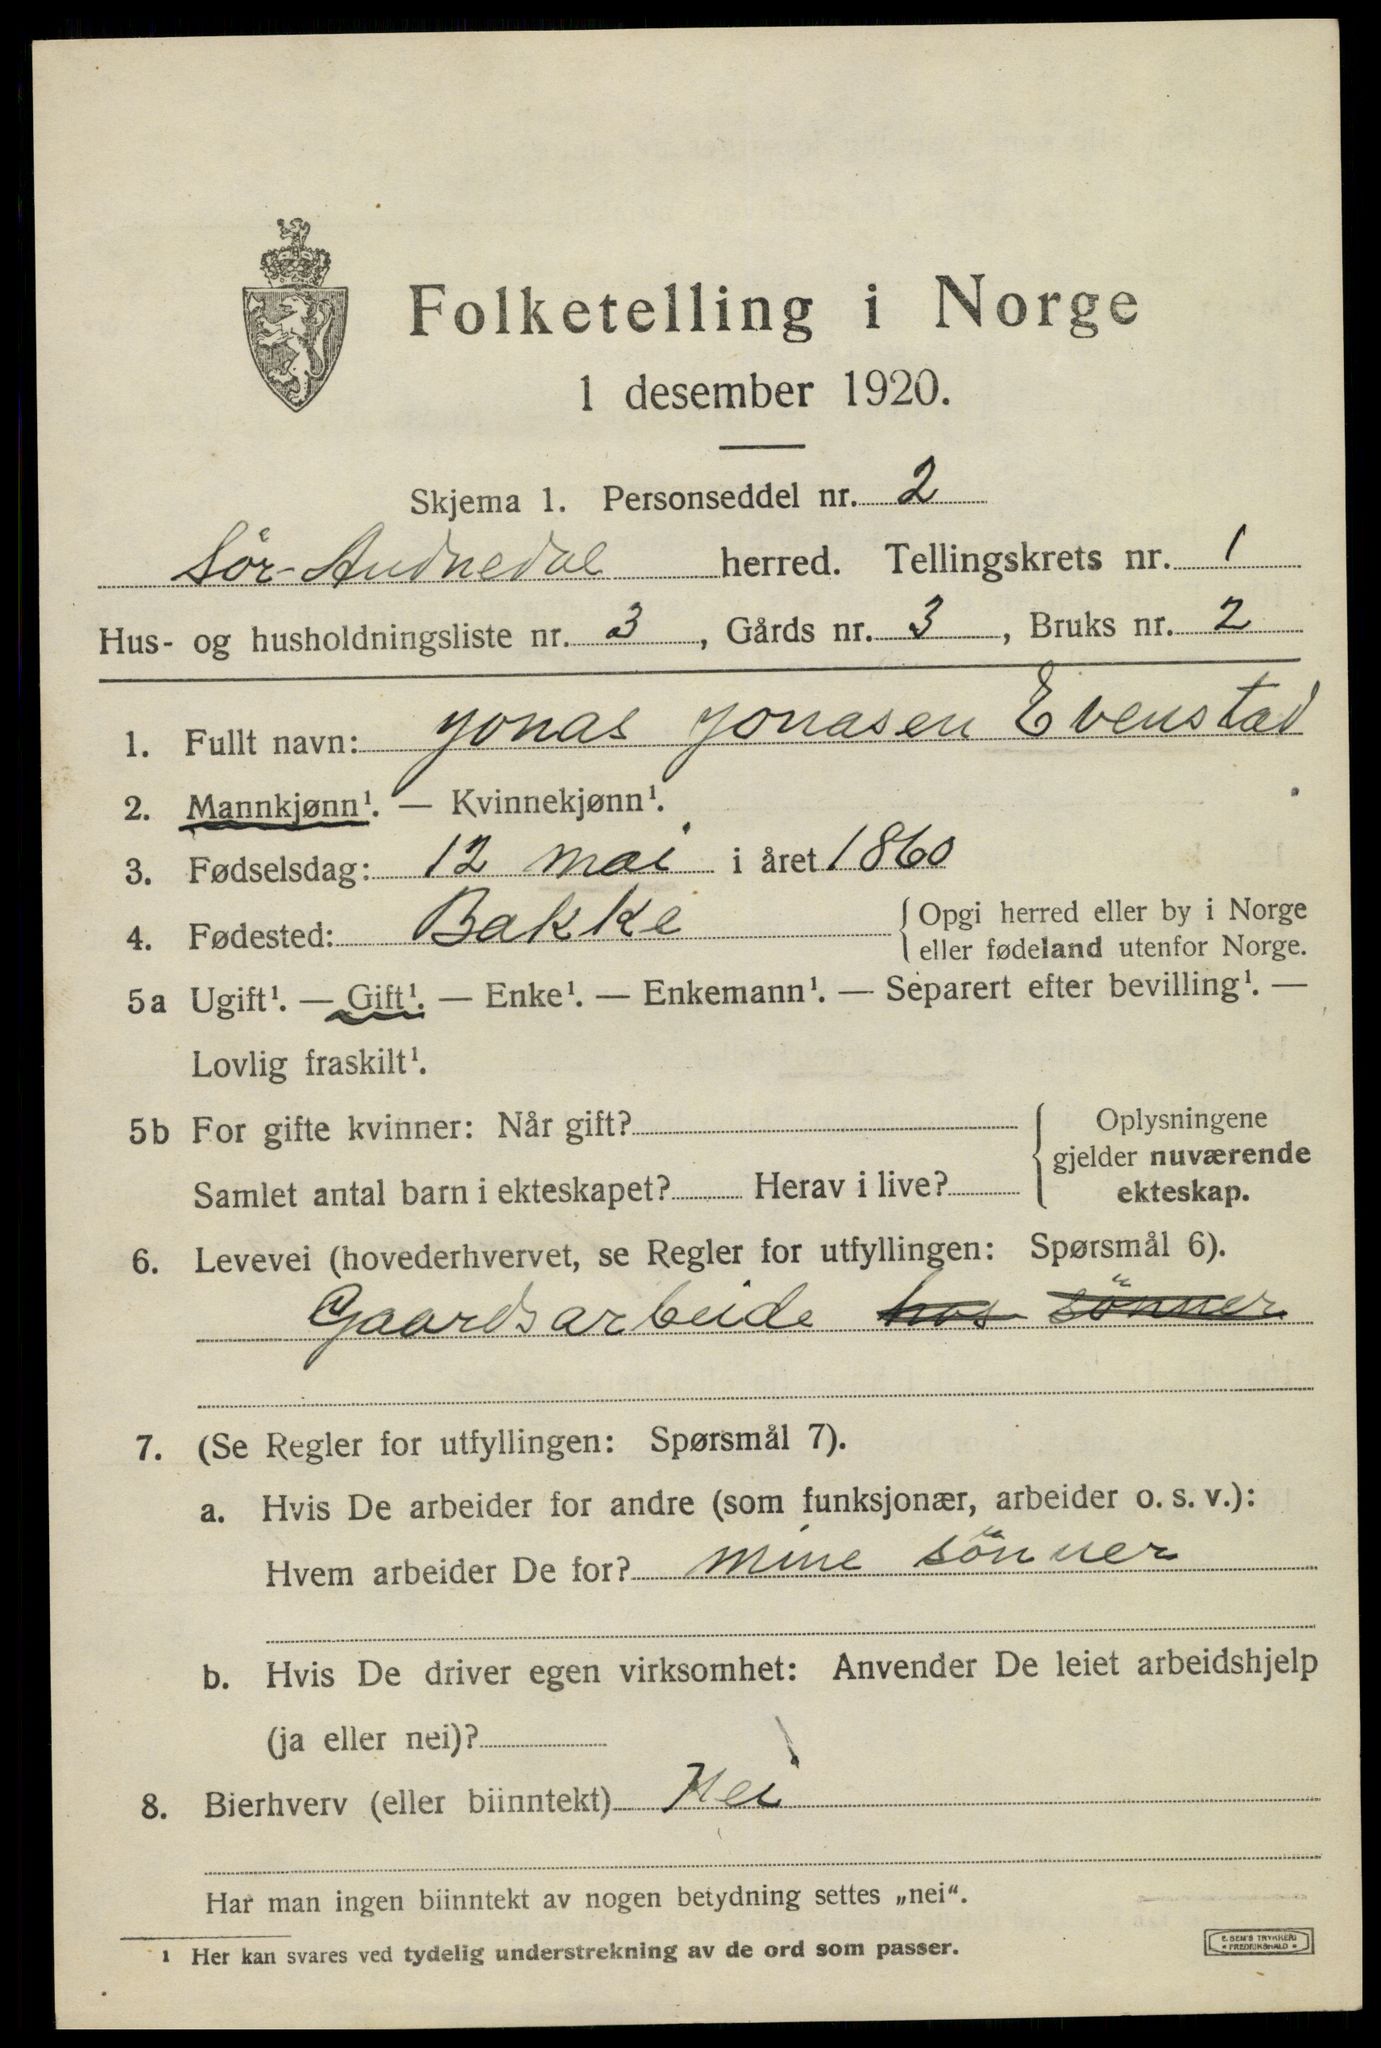 Folketelling i Norge
1 desember 1920.
Skjema 1. Personseddel nr. 2
Sör-Audnedal herred. Tellingskrets nr. 1
Hus- og husholdningsliste nr. 3, Gårds nr. 3, Bruks nr. 2
1. Fullt navn: Jonas Jonasen Evenstad
2. Mannkjønn¹. — Kvinnekjønn¹.
3. Fødselsdag: 12 mai i året 1860
4. Fødested: Bakke {Opgi herred eller by i Norge
eller fødeland utenfor Norge.
5a Ugift¹. — Gift¹. — Enke¹. — Enkemann¹. — Separert efter bevilling¹. —
Lovlig fraskilt¹.
5b For gifte kvinner: Når gift?
Samlet antal barn i ekteskapet? Herav i live?
Oplysningene
gjelder nuværende
ekteskap.
6. Levevei (hovederhvervet, se Regler for utfyllingen: Spørsmål 6).
Gaardsarbeide hos sönner
7. (Se Regler for utfyllingen: Spørsmål 7).
a. Hvis De arbeider for andre (som funksjonær, arbeider o. s. v.):
Hvem arbeider De for? mine sönner
b. Hvis De driver egen virksomhet: Anvender De leiet arbeidshjelp
(ja eller nei)?
8. Bierhverv (eller biinntekt) Nei
Har man ingen biinntekt av nogen betydning settes „nei“.
¹ Her kan svares ved tydelig understrekning av de ord som passer.
E. SEM'S TRYKKERI
• FREDRIKSHALD •